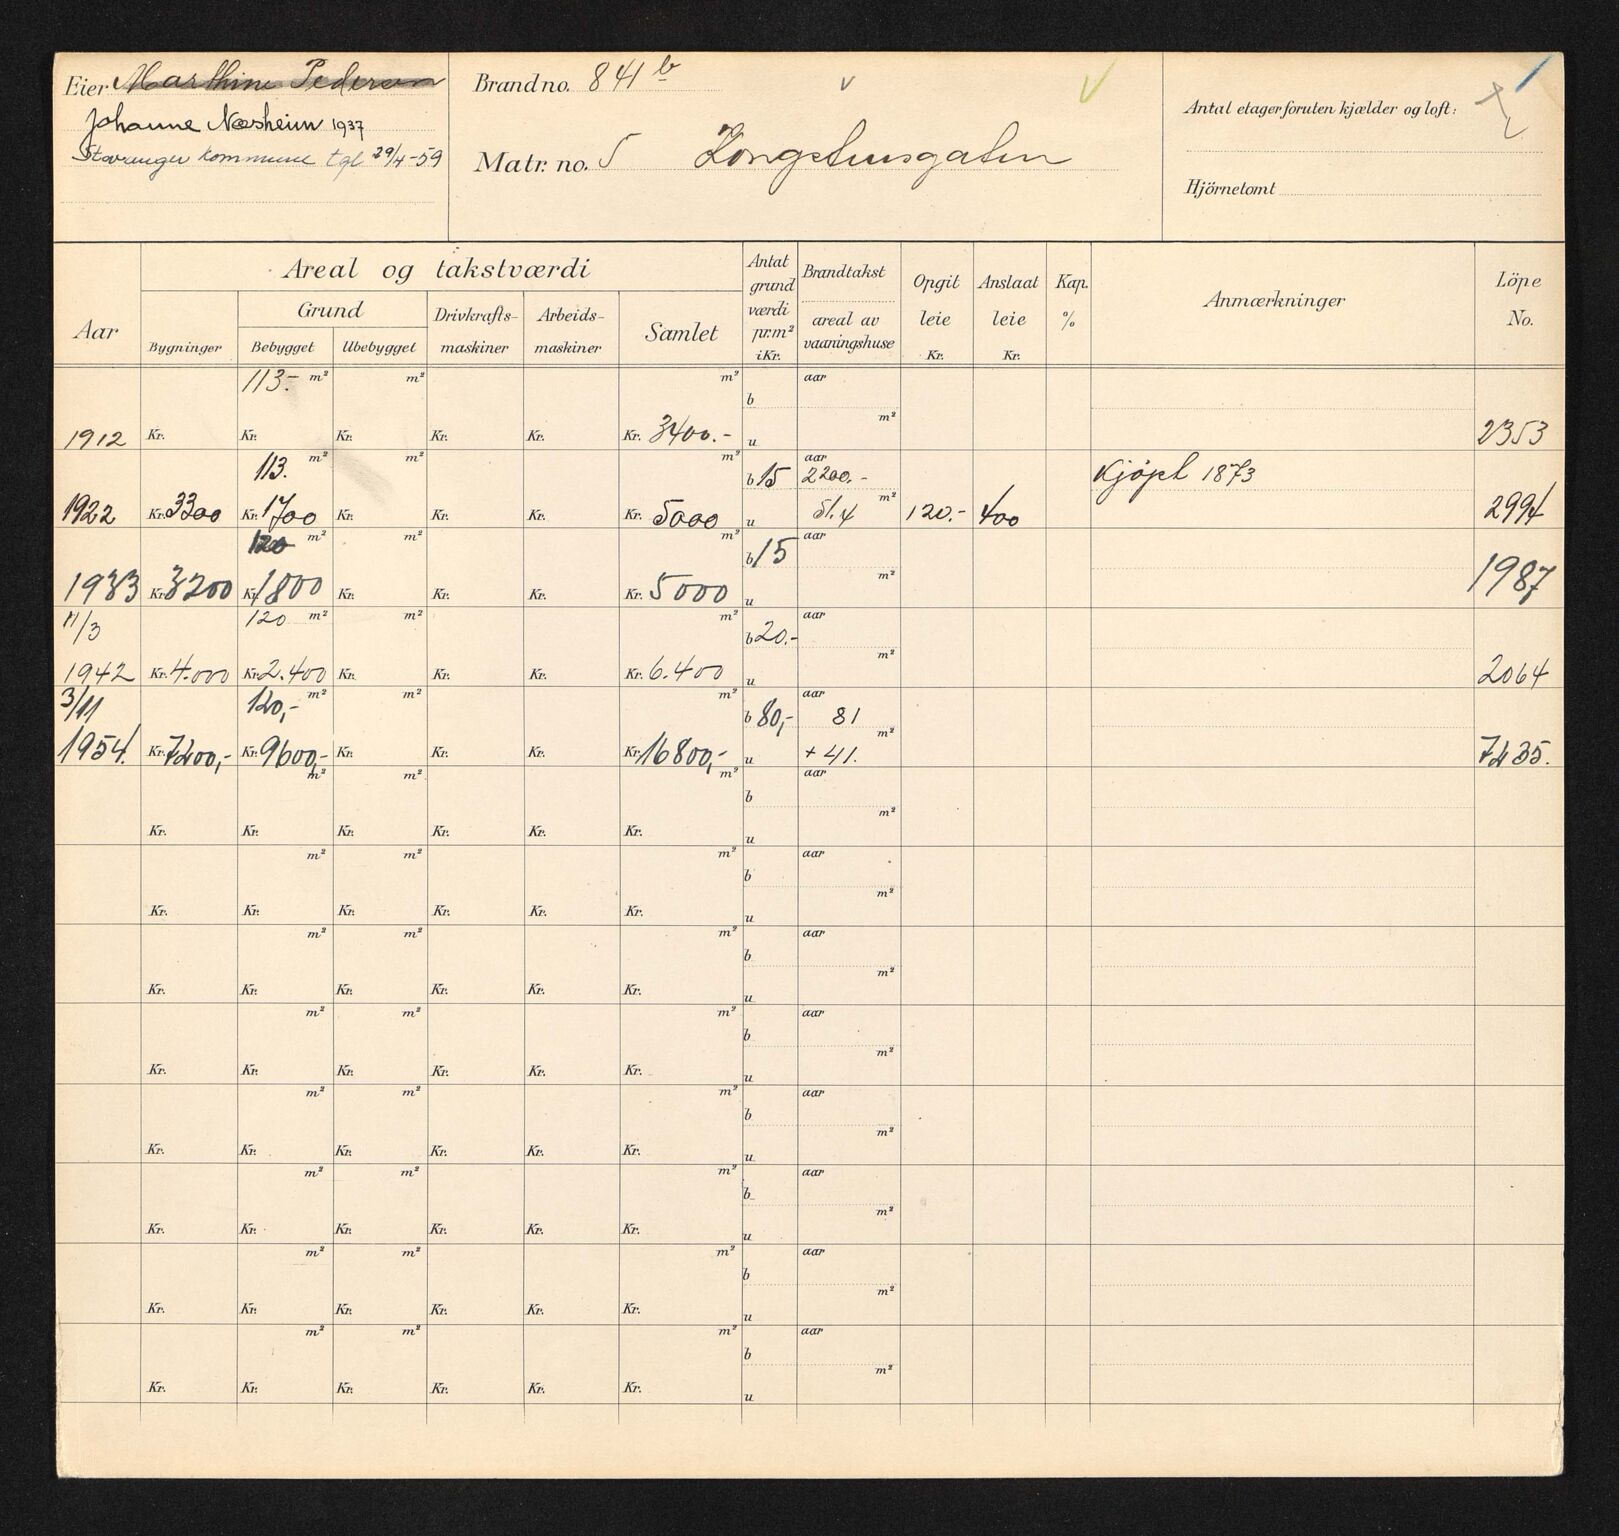 Eier Marthine Pedersen
Johanne Næsheim 1937
Stavanger kommune tgl 29/4-59
Brand no. 841 b
Matr. no. 5 Kongshusgaten
Antal etager foruten kjælder og loft:
Hjörnetomt
Aar
Areal og takstværdi
Bygninger
Grund
Bebygget Ubebygget
Drivkrafts-maskiner
Arbeids-maskiner
Samlet
Antat grund værdi pr. m² i Kr.
Brandtakst
areal av vaaningshuse
Opgit leie Kr.
Anslaat leie Kr.
Kap. %
Anmærkninger
Löpe No.
113.- m² m² m² b aar m²
1912 Kr. Kr. Kr. Kr. Kr. Kr. 3400.- u 2353
113. m² m² m² b 15 aar 2200.- Kjöpt 1873
1922 Kr. 3300 Kr. 1700 Kr. Kr. Kr. Kr. 5000 u 51.4 m² 120.- 400 2994
120 m² m² m² b 15 aar m²
1933 Kr. 3200 Kr. 1800 Kr. Kr. Kr. Kr. 5000 u 1987
11/3 120 m² m² m² b 20.- aar m²
1942 Kr. 4.000 Kr. 2.400 Kr. Kr. Kr. Kr. 6.400 u 2064
3/11 120,- m² m² m² b 80,- aar 81 m²
1954. Kr. 7200,- Kr. 9600,- Kr. Kr. Kr. Kr. 16800,- u + 41. 7235.
m² m² m² b aar m²
Kr. Kr. Kr. Kr. Kr. Kr. u
m² m² m² b aar m²
Kr. Kr. Kr. Kr. Kr. Kr. u
m² m² m² b aar m²
Kr. Kr. Kr. Kr. Kr. Kr. u
m² m² m² b aar m²
Kr. Kr. Kr. Kr. Kr. Kr. u
m² m² m² b aar m²
Kr. Kr. Kr. Kr. Kr. Kr. u
m² m² m² b aar m²
Kr. Kr. Kr. Kr. Kr. Kr. u
m² m² m² b aar m²
Kr. Kr. Kr. Kr. Kr. Kr. u
m² m² m² b aar m²
Kr. Kr. Kr. Kr. Kr. Kr. u